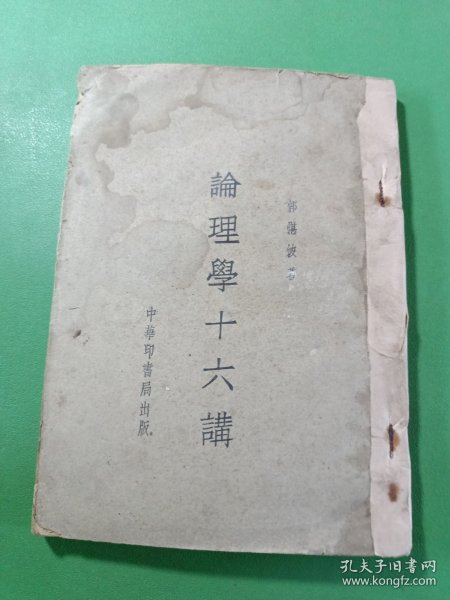 郭湛波著
論理學十六講
中華印書局出版。
孔夫子旧书网
www.kongfz.com